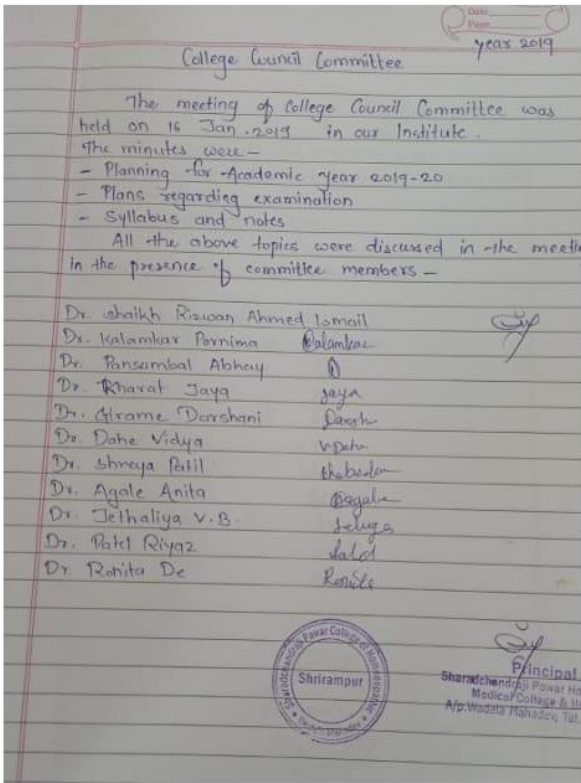 Date
Page
year 2019
College Council Committee
The meeting of College Council Committee was
held on 16 Jan. 2019 in our Institute.
The minutes were –
- Planning for Academic year 2019-20
- Plans regarding examination
- Syllabus and notes
All the above topics were discussed in the meetin
in the presence of committee members –
Dr. Shaikh Rizwan Ahmed Ismail
Dr. Kalamkar Pornima
Dr. Pansambal Abhay
Dr. Kharat Jaya Jaya
Dr. Girame Darshani
Dr. Dahe Vidya
Dr. Shreya Patil
Dr. Agale Anita
Dr. Jethaliya V.B.
Dr. Patel Riyaz
Dr. Rohita De
Sharadchandraji Pawar College of Homoeopathic
Shrirampur
Principal
Sharadchandraji Pawar Ho
Medical College & H
A/p. Wadala Mahadev, Tal.